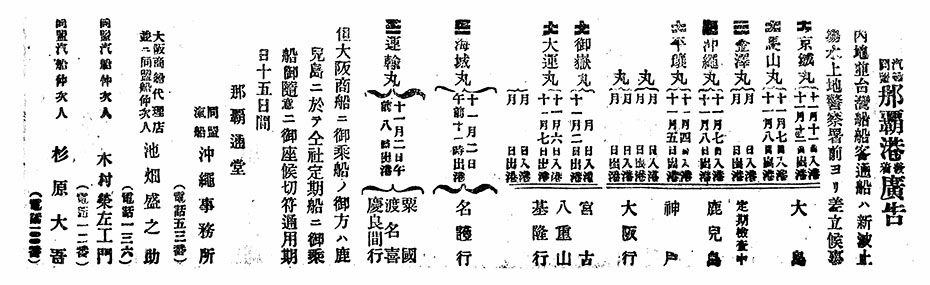 汽船
同盟 那覇港 發着 廣告
内地竝台灣船船客通船ハ新波止
塲水上地警察署前ヨリ差立候事
京城丸 十一月十一日入港 大島
馬山丸 十一月七日入港 十一月八日出港
金澤丸 月 日入港 月 日出港 定期檢査中
沖縄丸 十一月七日入港 十一月八日出港 鹿兒島
平壌丸 十一月四日入港 十一月五日出港 神戸
丸 月 日入港
丸 月 日出港 大阪行
御嶽丸 月 日入港 十一月二日出港 宮古
大運丸 十一月六日入港 十一月七日出港 八重山
基隆行
海城丸 十一月二日 午前十一時出港 名護行
運輸丸 十一月二日午前八時出港 粟國 渡名喜 慶良間行
但大阪商船ニ御乘船ノ御方ハ鹿
兒島ニ於テ仝社定期船ニ御乘
船御隨意ニ御座候切符通用期
日十五日間
那覇通堂
同盟
汽船 沖縄事務所
(電話五三番)
大阪商船代理店
竝ニ同盟船仲次人 池畑盛之助
(電話一三六)
同盟汽船仲次人 木村榮左エ門
(電話一一二番)
同盟汽船仲次人 杉原大吾
(電話100番)